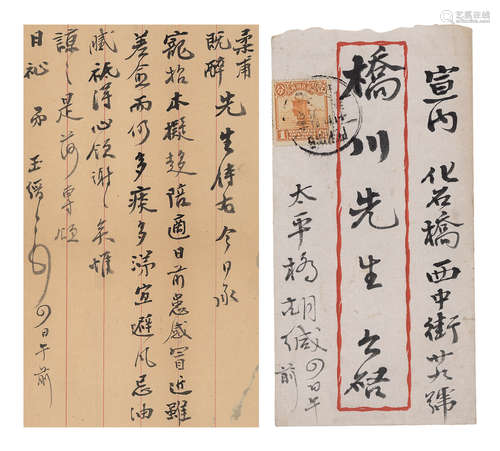 柔甫
既醉 先生侍右今日承
寵招本擬趨陪適日前患感冒近雖
差愈而仍多痰多涕宜避風忌油
膩祇得心領謝謝矣惟
諒之是荷專頌
日祉 弟王
四日午前
宣内 化石橋西中街廿八號
橋川先生 台啓
太平橋胡緘 四日午前